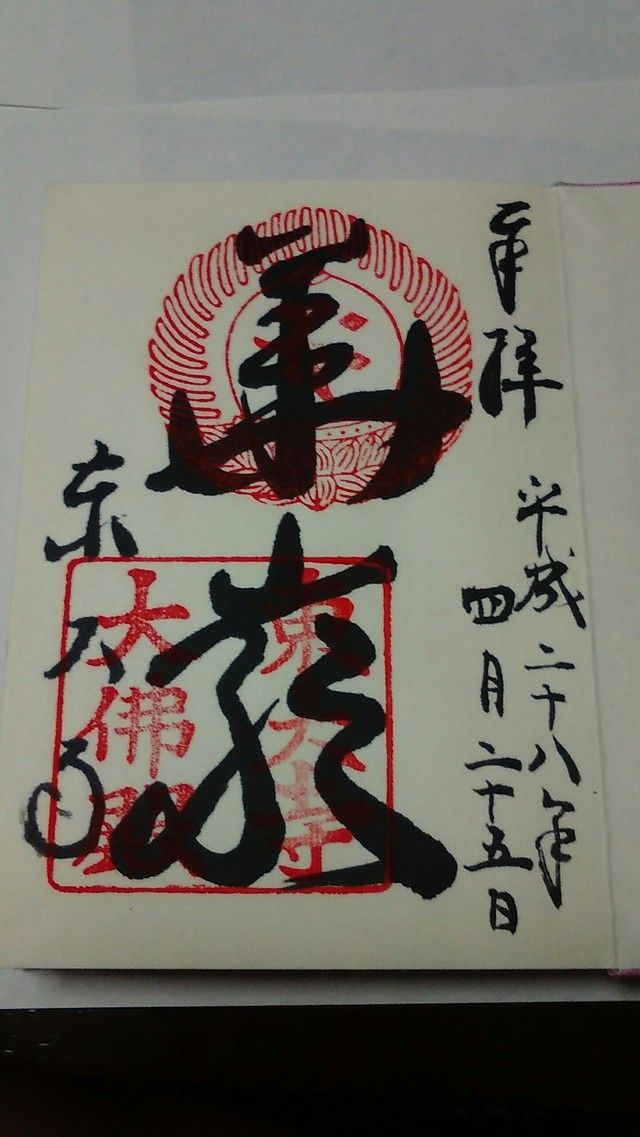 奉拝
平成二十八年
四月二十五日
華厳
東大寺
東大寺
大佛殿